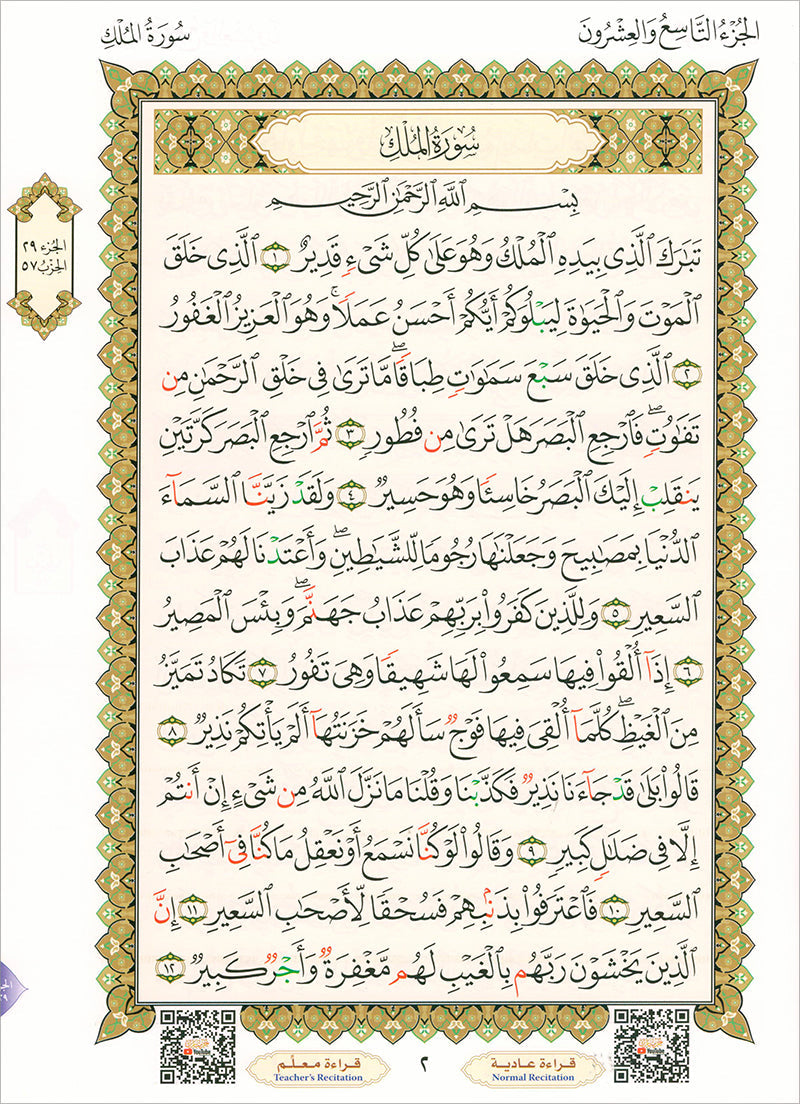 الجُزْءُ التَّاسِعُ وَالعِشْرُونَ
سُورَةُ المُلْكِ
سُورَةُ المُلْكِ
بِسْمِ اللَّهِ الرَّحْمَٰنِ الرَّحِيمِ
الجُزء ٢٩
الحِزْبُ ٥٧
تَبَٰرَكَ ٱلَّذِى بِيَدِهِ ٱلْمُلْكُ وَهُوَ عَلَىٰ كُلِّ شَىْءٍ قَدِيرٌ ١ ٱلَّذِى خَلَقَ
ٱلْمَوْتَ وَٱلْحَيَوٰةَ لِيَبْلُوَكُمْ أَيُّكُمْ أَحْسَنُ عَمَلًا ۚ وَهُوَ ٱلْعَزِيزُ ٱلْغَفُورُ
٢ ٱلَّذِى خَلَقَ سَبْعَ سَمَٰوَٰتٍ طِبَاقًا ۖ مَّا تَرَىٰ فِى خَلْقِ ٱلرَّحْمَٰنِ مِن
تَفَٰوُتٍ ۖ فَٱرْجِعِ ٱلْبَصَرَ هَلْ تَرَىٰ مِن فُطُورٍ ٣ ثُمَّ ٱرْجِعِ ٱلْبَصَرَ كَرَّتَيْنِ
يَنقَلِبْ إِلَيْكَ ٱلْبَصَرُ خَاسِئًا وَهُوَ حَسِيرٌ ٤ وَلَقَدْ زَيَّنَّا ٱلسَّمَآءَ
ٱلدُّنْيَا بِمَصَٰبِيحَ وَجَعَلْنَٰهَا رُجُومًا لِّلشَّيَٰطِينِ ۖ وَأَعْتَدْنَا لَهُمْ عَذَابَ
ٱلسَّعِيرِ ٥ وَلِلَّذِينَ كَفَرُوا۟ بِرَبِّهِمْ عَذَابُ جَهَنَّمَ ۖ وَبِئْسَ ٱلْمَصِيرُ
٦ إِذَآ أُلْقُوا۟ فِيهَا سَمِعُوا۟ لَهَا شَهِيقًا وَهِىَ تَفُورُ ٧ تَكَادُ تَمَيَّزُ
مِنَ ٱلْغَيْظِ ۖ كُلَّمَآ أُلْقِىَ فِيهَا فَوْجٌ سَأَلَهُمْ خَزَنَتُهَآ أَلَمْ يَأْتِكُمْ نَذِيرٌ ٨
قَالُوا۟ بَلَىٰ قَدْ جَآءَنَا نَذِيرٌ فَكَذَّبْنَا وَقُلْنَا مَا نَزَّلَ ٱللَّهُ مِن شَىْءٍ إِنْ أَنتُمْ
إِلَّا فِى ضَلَٰلٍ كَبِيرٍ ٩ وَقَالُوا۟ لَوْ كُنَّا نَسْمَعُ أَوْ نَعْقِلُ مَا كُنَّا فِىٓ أَصْحَٰبِ
ٱلسَّعِيرِ ١٠ فَٱعْتَرَفُوا۟ بِذَنۢبِهِمْ فَسُحْقًا لِّأَصْحَٰبِ ٱلسَّعِيرِ ١١ إِنَّ
ٱلَّذِينَ يَخْشَوْنَ رَبَّهُم بِٱلْغَيْبِ لَهُم مَّغْفِرَةٌ وَأَجْرٌ كَبِيرٌ ١٢
YouTube
قراءة عادية
Normal Recitation
٢
قراءة معلّم
Teacher's Recitation
YouTube